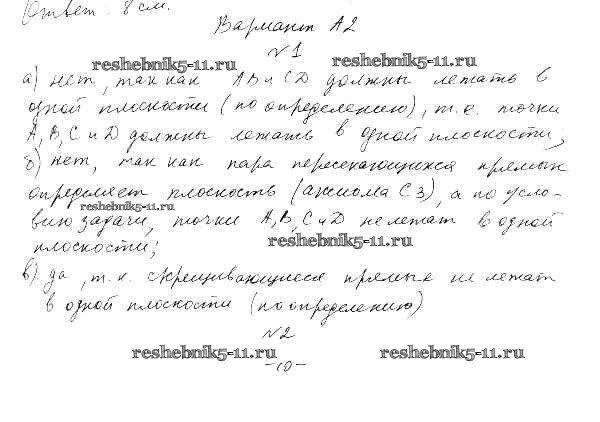 Ответ: 8 см.
Вариант А2
№1
reshebnik5-11.ru reshebnik5-11.ru
а) нет, так как AB и CD должны лежать в
одной плоскости (по определению), т.е. точки
A, B, C и D должны лежать в одной плоскости;
б) нет, так как пара пересекающихся прямых
определяет плоскость (аксиома С.3), а по усло-
reshebnik5-11.ru
вию задачи, точки A, B, C и D не лежат в одной
плоскости;
reshebnik5-11.ru
в) да, т.к. скрещивающиеся прямые не лежат
в одной плоскости (по определению)
№2
reshebnik5-11.ru reshebnik5-11.ru
-10-